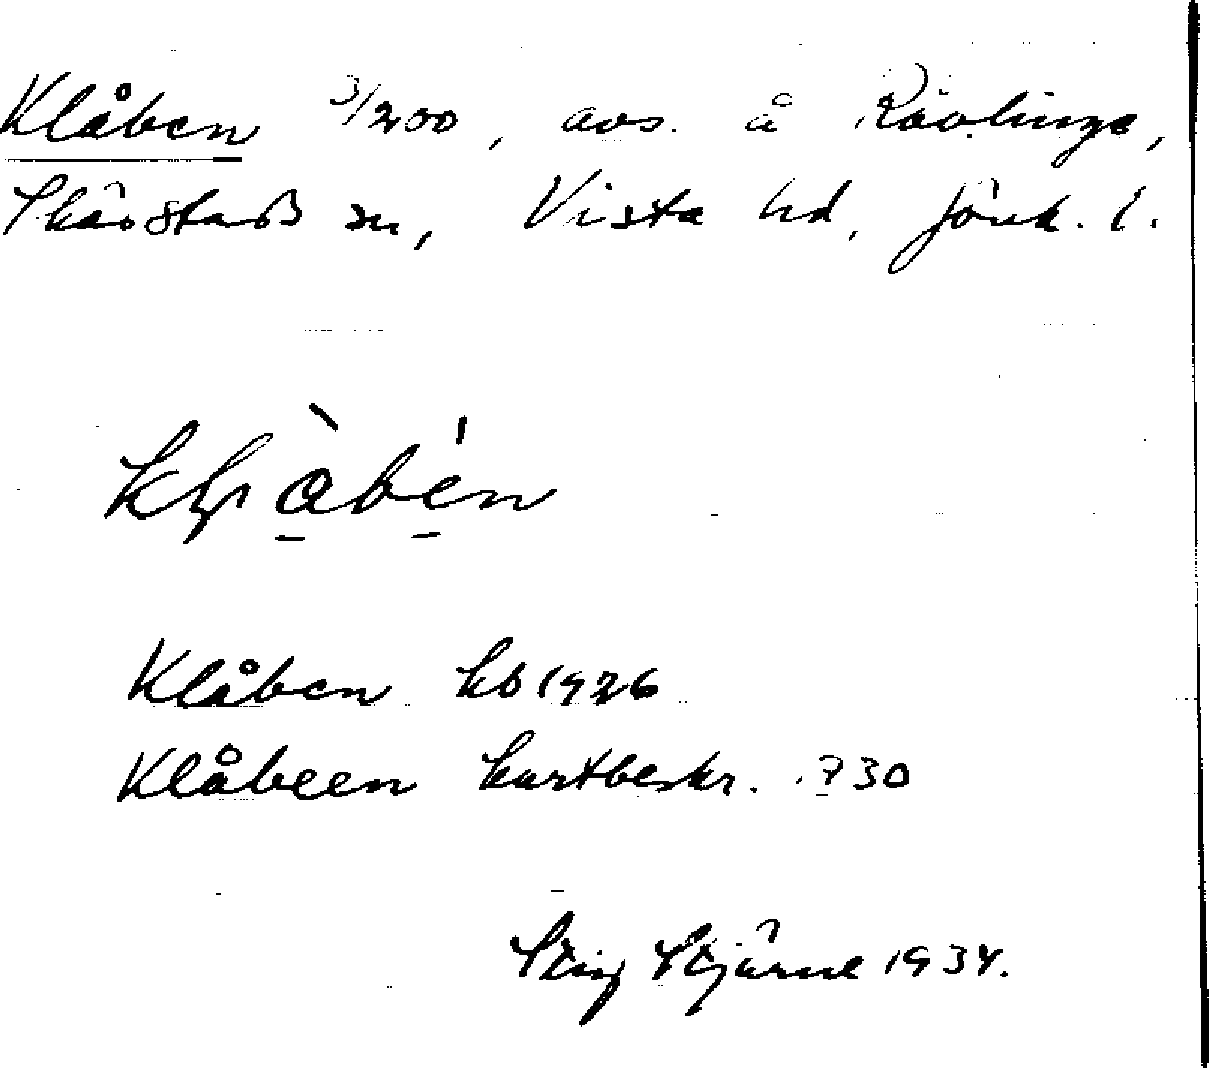 Klåben 3/200, avs. å Rävlinge,
Skärstads sn, Vista hd, Jönk. l.
Klåben kb 1926
Klåbeen kartbeskr. 1730
Stig Stjärne 1934.